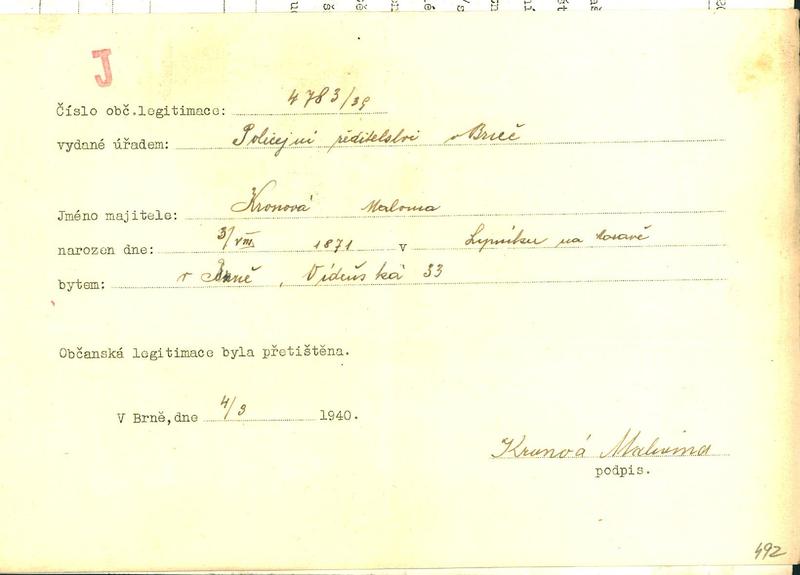 J
Číslo obč.legitimace: 4783/39
vydané úřadem: Policejní ředitelství v Brně
Jméno majitele: Kronová
narozen dne: 3/VIII. 1871 v Lipníku na
bytem: v Brně, Vídeňská 33
Občanská legitimace byla přetištěna.
V Brně,dne 4/3 1940.
Kronová Malvina
podpis.
492